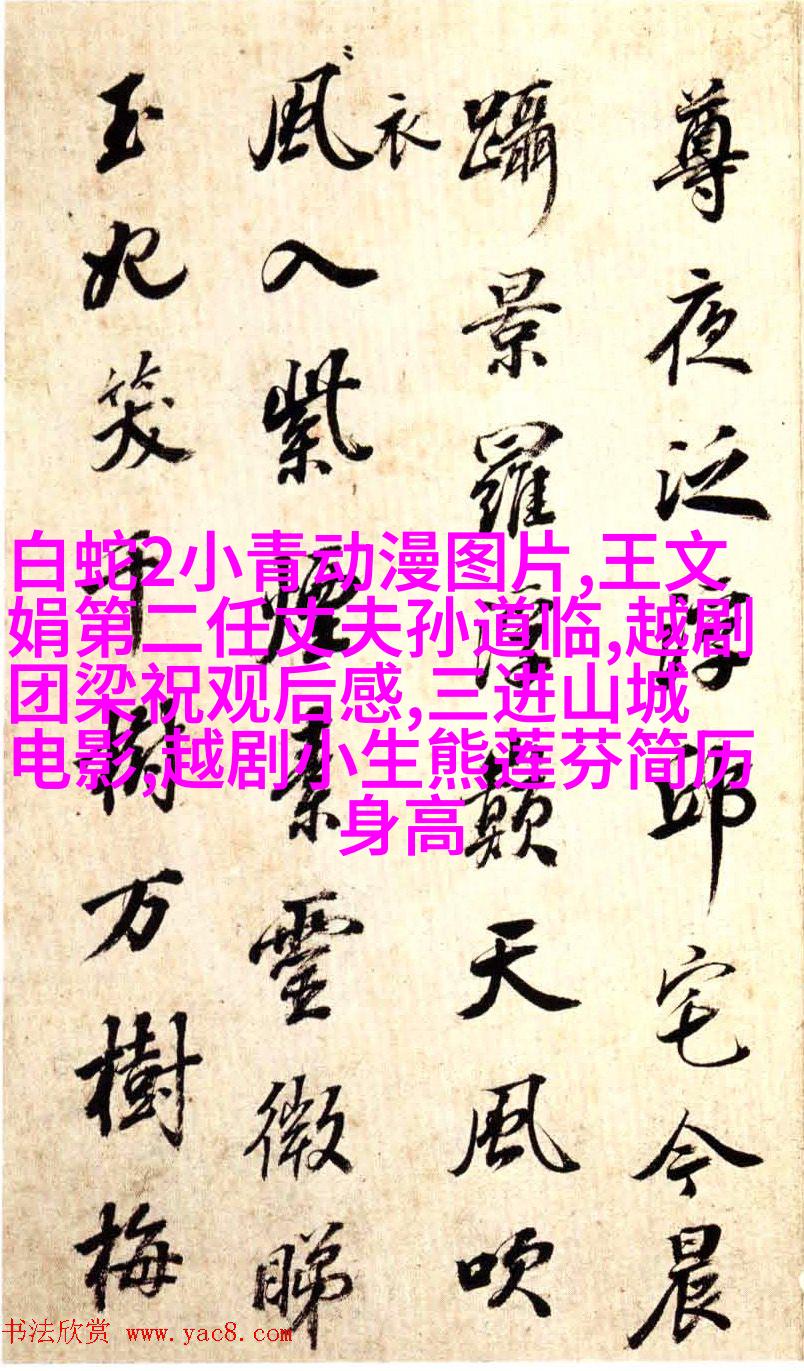 尊夜泛淳邱宅今晨
躡景羅浮巔天風吹
衣
風入紫煙素雲微睇
玉妃笑千樹万樹梅
白蛇2小青动漫图片,王文
娟第二任丈夫孙道临,越剧
团梁祝观后感,三进山城
电影,越剧小生熊莲芬简历
身高
书法欣赏 www.yac8.com